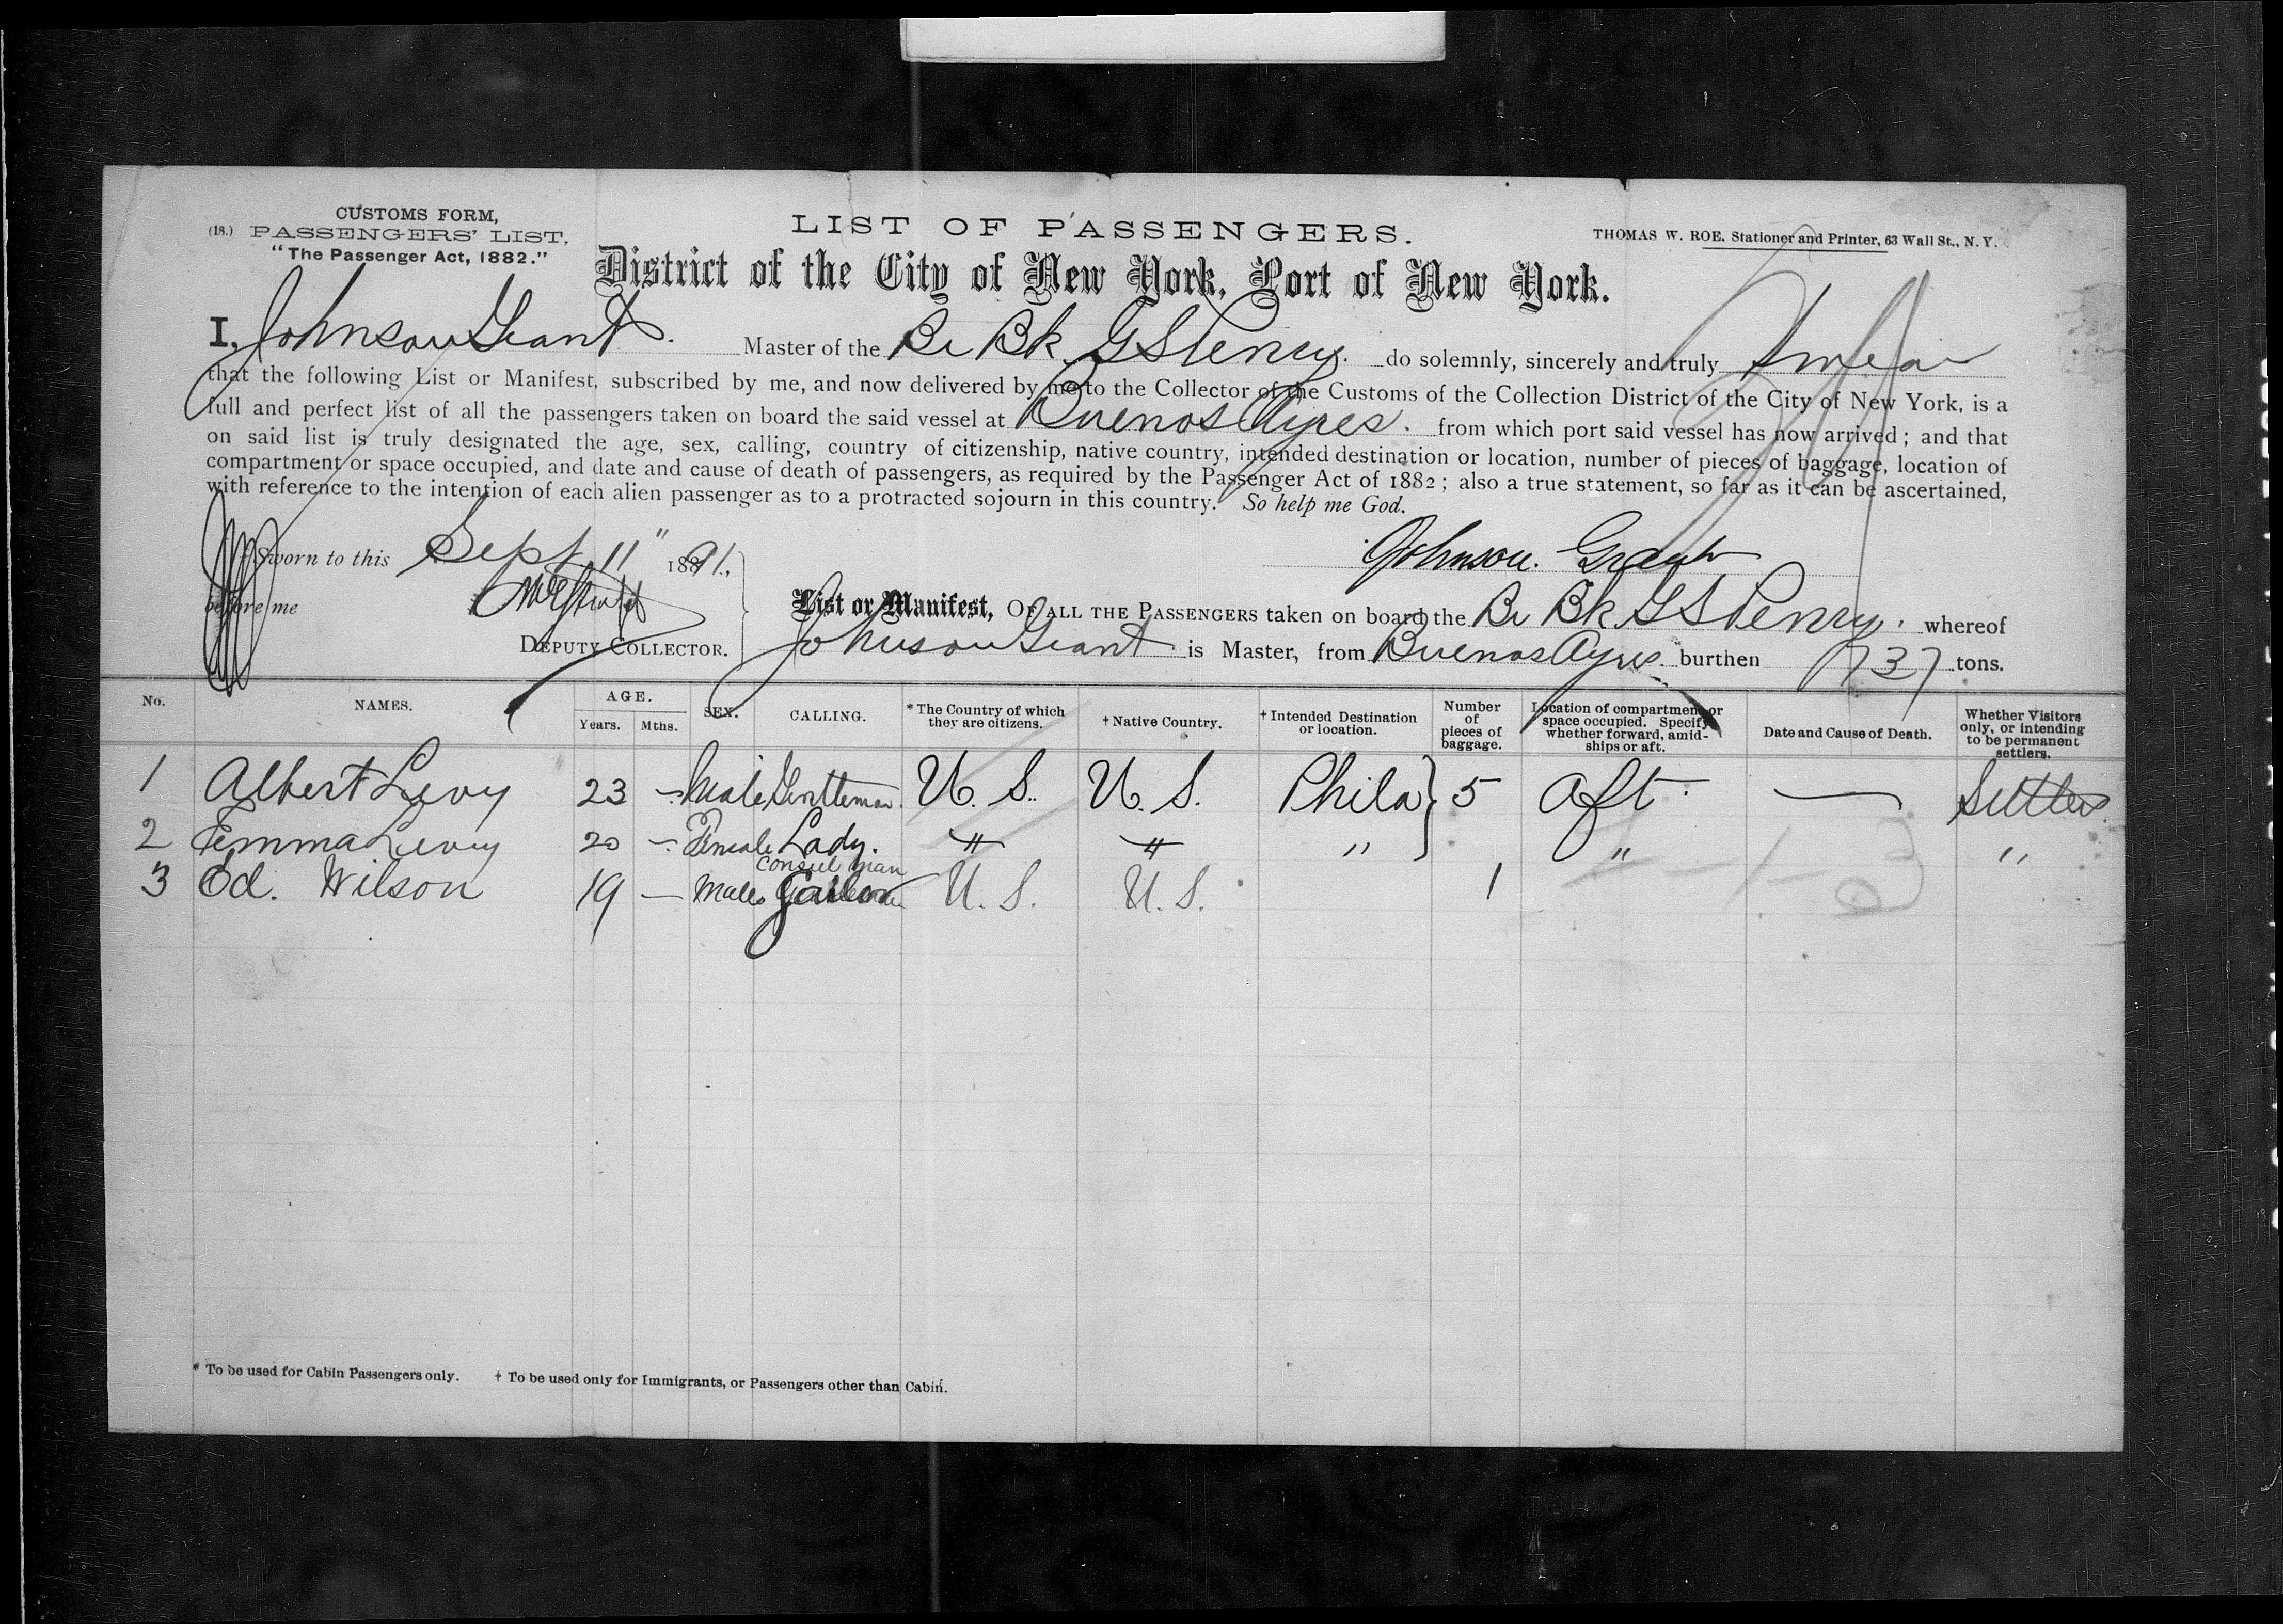 CUSTOMS FORM,
(18.) PASSENGERS' LIST,
"The Passenger Act, 1882."
LIST OF PASSENGERS.
THOMAS W. ROE. Stationer and Printer, 63 Wall St., N. Y.
District of the City of New York, Port of New York.
I, Johnson Grant. Master of the Br Bk G S Penry. do solemnly, sincerely and truly Swear
that the following List or Manifest, subscribed by me, and now delivered by me to the Collector of the Customs of the Collection District of the City of New York, is a
full and perfect list of all the passengers taken on board the said vessel at Buenos Ayres. from which port said vessel has now arrived; and that
on said list is truly designated the age, sex, calling, country of citizenship, native country, intended destination or location, number of pieces of baggage, location of
compartment or space occupied, and date and cause of death of passengers, as required by the Passenger Act of 1882; also a true statement, so far as it can be ascertained,
with reference to the intention of each alien passenger as to a protracted sojourn in this country. So help me God.
Sworn to this Sept 11" 1891.,
Johnson. Grant
before me
DEPUTY COLLECTOR.
List or Manifest, OF ALL THE PASSENGERS taken on board the Br Bk G S Penry. whereof
Johnson Grant is Master, from Buenos Ayres burthen 737 tons.
No. NAMES. AGE. Years. Mths. SEX. CALLING. * The Country of which they are citizens. † Native Country. † Intended Destination or location. Number of pieces of baggage. Location of compartment or space occupied. Specify whether forward, amidships or aft. Date and Cause of Death. Whether Visitors only, or intending to be permanent settlers.
1 Albert Levy 23 — Male Gentleman. U. S. U. S. Phila } 5 Aft — Settlers
2 Emma Levy 20 — Female Lady. " " " " "
Consul man
3 Ed. Wilson 19 — Male Sailor U. S. U. S. 1
* To be used for Cabin Passengers only. † To be used only for Immigrants, or Passengers other than Cabin.